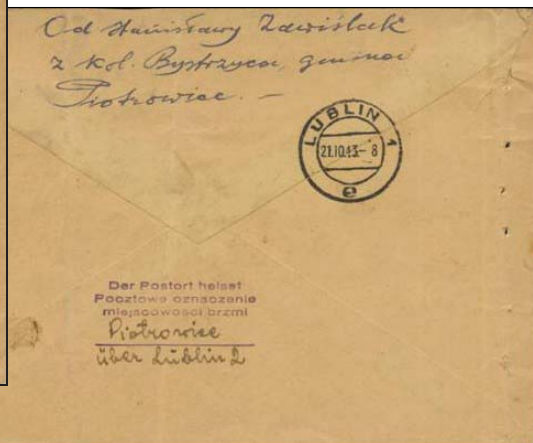 Od Stanisławy Zawiślak
z Kol. Bystrzyca, gmina
Piotrowice. —
LUBLIN 1
21.10.43-8
e
Der Postort heisst
Pocztowe oznaczenie
miejscowości brzmi
Piotrowice
über Lublin 2